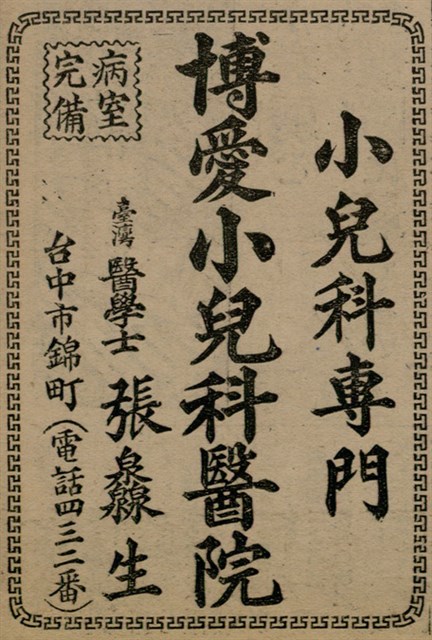 小兒科專門
博愛小兒科醫院
病室
完備
臺灣醫學士 張灥生
台中市錦町(電話四三二番)